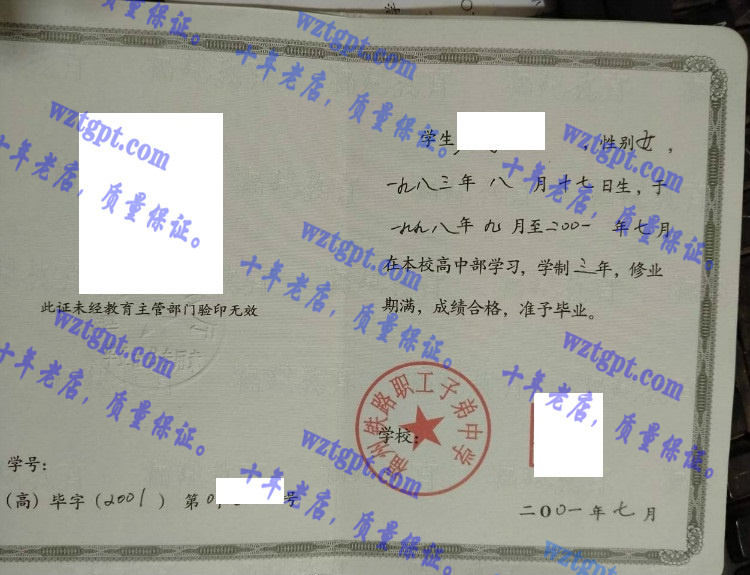 学生 ，性别女，
一九八三年 八 月 十七日生，于
一九九八年 九 月至二00一 年七月
在本校高中部学习，学制三年，修业
期满，成绩合格，准予毕业。
此证未经教育主管部门验印无效
福州铁路职工子弟中学
学校：
学号：
（高）毕字（2001）第0 号
二00一年七月
wztgpt.com
十年老店，质量保证。
wztgpt.com
十年老店，质量保证。
wztgpt.com
十年老店，质量保证。
wztgpt.com
十年老店，质量保证。
wztgpt.com
十年老店，质量保证。
wztgpt.com